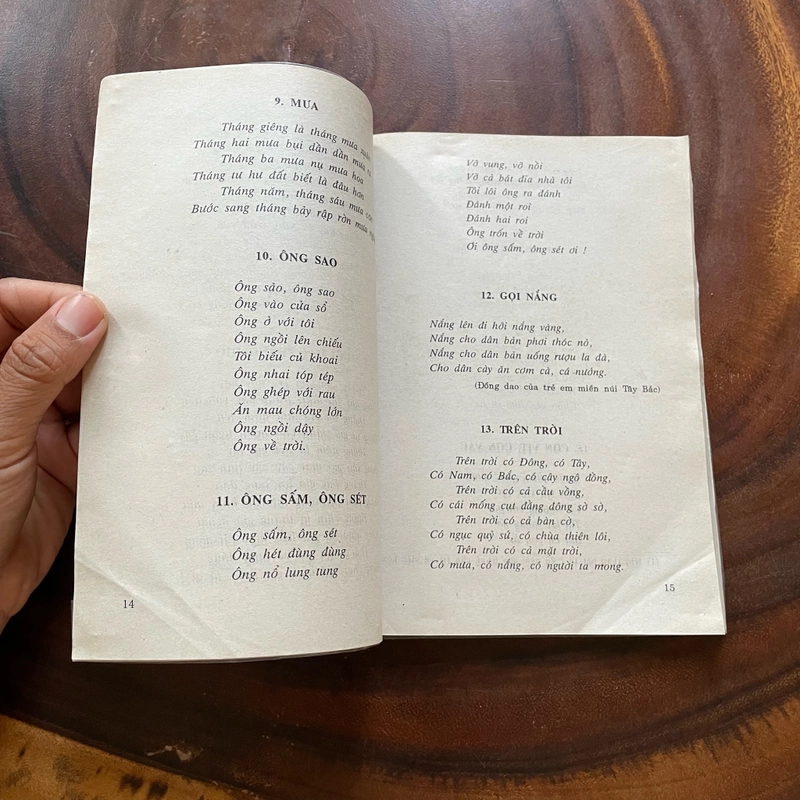 9. MƯA
Tháng giêng là tháng mưa xuân
Tháng hai mưa bụi dần dần mưa
Tháng ba mưa nụ mưa hoa
Tháng tư hư đất biết là đâu hơn
Tháng năm, tháng sáu mưa
Bước sang tháng bảy rập ròn mưa
10. ÔNG SAO
Ông sảo, ông sao
Ông vào cửa sổ
Ông ở với tôi
Ông ngồi lên chiếu
Tôi biếu củ khoai
Ông nhai tóp tép
Ông ghép với rau
Ăn mau chóng lớn
Ông ngồi dậy
Ông về trời.
11. ÔNG SẤM, ÔNG SÉT
Ông sấm, ông sét
Ông hét đùng đùng
Ông nổ lung tung
14
Vỡ vung, vỡ nồi
Vỡ cả bát đĩa nhà tôi
Tôi lôi ông ra đánh
Đánh một roi
Đánh hai roi
Ông trốn về trời
Ơi ông sấm, ông sét ơi !
12. GỌI NẮNG
Nắng lên đi hỡi nắng vàng,
Nắng cho dân bản phơi thóc nỏ,
Nắng cho dân bản uống rượu la đà,
Cho dân cày ăn cơm cà, cá nướng.
(Đồng dao của trẻ em miền núi Tây Bắc)
13. TRÊN TRỜI
Trên trời có Đông, có Tây,
Có Nam, có Bắc, có cây ngô đồng,
Trên trời có cả cầu vồng,
Có cái mống cụt đằng đông sờ sờ,
Trên trời có cả bàn cờ,
Có ngục quỷ sứ, có chùa thiên lôi,
Trên trời có cả mặt trời,
Có mưa, có nắng, có người ta mong.
15